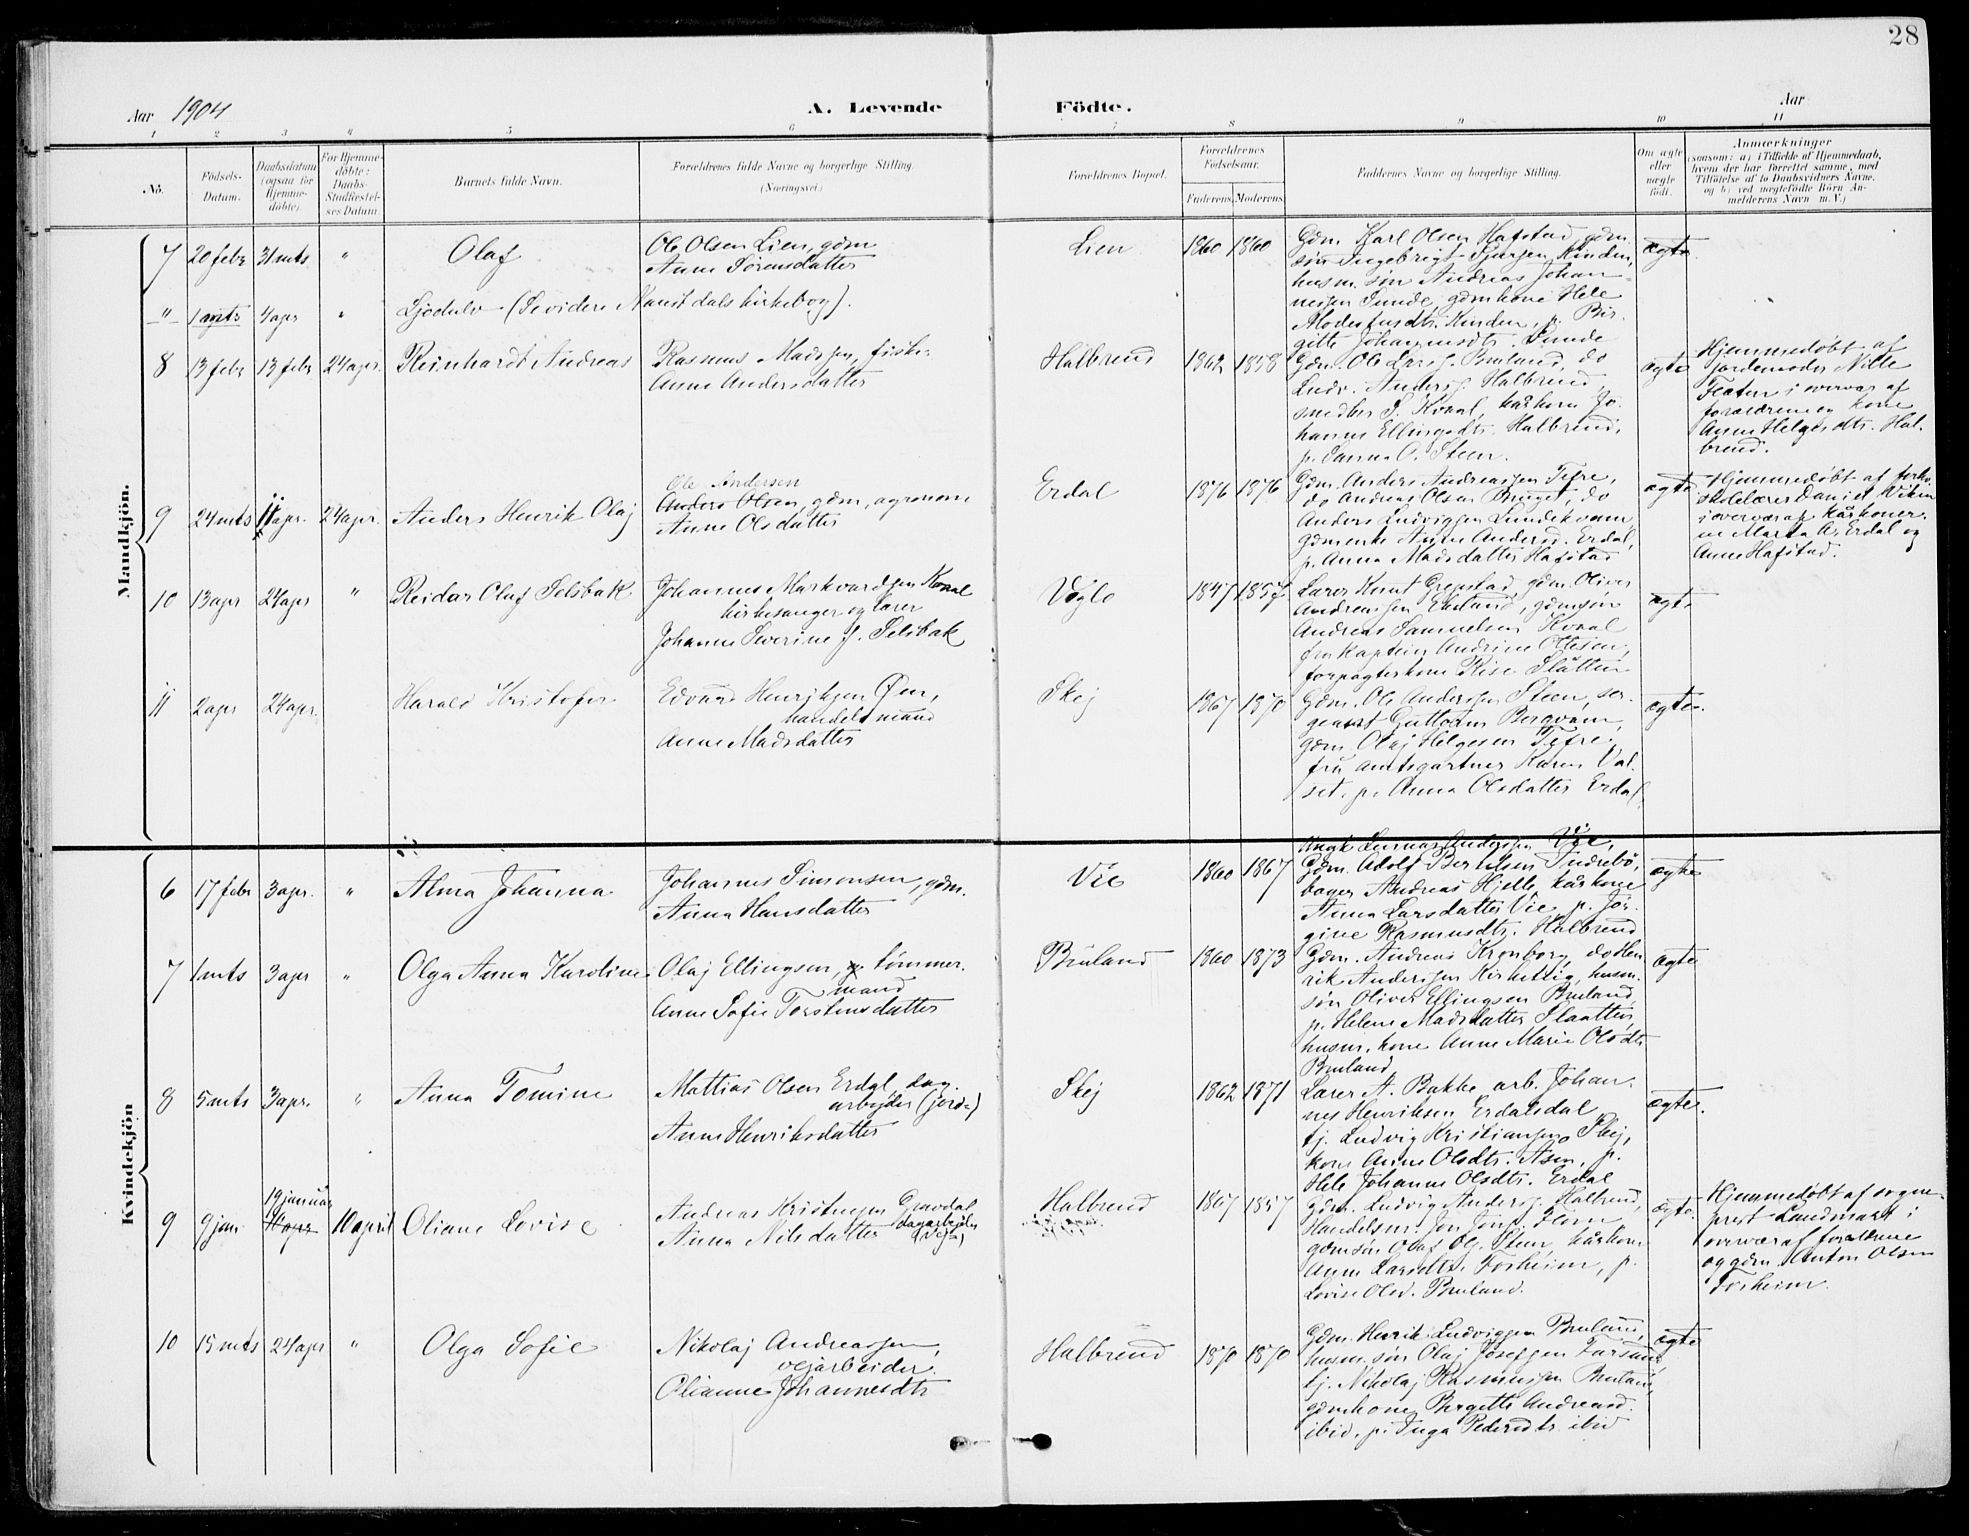 28
Aar 1904
A. Levende
Födte.
Aar
1 2 3 4 5 6 7 8 9 10 11
No.
Födsels-
Datum.
Daabsdatum
(ogsaa for
Hjemme-
döbte).
For Hjemme-
döbte:
Daabs-
Stadfæstel-
ses Datum
Barnets fulde Navn.
Forældrenes fulde Navne og borgerlige Stilling.
(Næringsvei.)
Forældrenes Bopæl.
Forældrenes
Födselsaar.
Faderens Moderens
Faddernes Navne og borgerlige Stilling.
Om ægte
eller
uægte
födt.
Anmærkninger
(saasom: a) i Tilfælde af Hjemmedaab,
hvem der har forrettet samme, med
Tilföielse af to Daabsvidners Navne,
og b) ved uægtefödte Börn An-
melderens Navn m. V.)
Mandkjön.
7 20 febr 31 mts " Olaf
Ole Olsen Lien, gdm
Anne Sörensdatter
Lien 1860 1860
Gdm. Karl Olsen Hafstad, gdm.
søn Ingebrigt Kinden,
husm. søn Andreas Johan
nessen Sunde, gdmkone Hele
Modestusdtr. Kinden, p. Bir-
gitte Johannesdt. Sunde
ægte
" 1 mts 4 apr " Ljodulv (Se videre Naustdals kirkebog).
8 13 febr 13 febr 24 apr. Reinhardt Andreas
Rasmus Madssen, fisker
Anne Andersdatter
Halbrend 1862 1858
Gdm. Ole Larss. Bruland, do
Ludv. Anderss. Halbrend,
smedber S. Kvaal, kårkone Jo-
hanne Ellingsdtr. Halbrend,
p. Sanna O. Steen.
ægte
Hjemmedøbt af
jordemoder Nille
i overvær af
forældrene og kone
Anne Helgesdtr. Hal-
brend.
9 24 mts 11 apr. 24 apr. Anders Henrik Olaj
Ole Andersen
Anders Olsen, gdm, agronom
Anne Olsdatter
Erdal 1876 1876
Gdm. Anders Andreassen Tefre,
do Andreas Olsen Bruget, do
Anders Ludvigssen Lundekvam,
gdmenke Anne Andersd. Erdal,
p. Anna Madsdatter Hafstad
ægte
Hjemmedøbt af forh.
skolelærer Daniel Viken
i overvær af kårkoner-
ne Marta A. Erdal og
Anne Hafstad.
10 13 apr 24 apr " Reidar Olaf Selsbak
Johannes Markvardsen Kvaal
kirkesanger og lærer
Johanne Severine f. Selsbak
Vogle 1847 1857
Lærer Knut Grepstad, gdm. Oliver
Andreassen Engeland, gdmsøn
Andreas Samuelsen Kvaal
fru kaptein Andrine Ottesen,
forpagterkone Rise Slåtten
ægte
11 2 apr 24 apr. Harald Kristofer
Edvard Henriksen Øen,
handelsmand
Anne Madsdatter
Skej 1867 1870
Gdm. Ole Anderssen Steen, ser-
geant Guttorm Bergvam,
gdm. Olaj Helgesen Tefre,
fru amtsgartner Karen Val-
set, p. Anna Olsdatter Erdal.
ægte.
Kvindekjön
6 17 febr 3 apr. " Alma Johanna
Johannes Simonsen, gdm.
Anna Hansdatter
Vie 1860 1867
Ungk. Anderssen Vie,
Gdm. Adolf Bertelsen Indrebö,
bager Andreas Hjelle, kårkone
Anna Larsdatter Vie, p. Jör-
gine Rasmusdtr. Halbrend
ægte
7 1 mts 3 apr " Olga Anna Karoline
Olaj Ellingsen, tømmer-
mand
Anne Sofie Torstensdatter
Bruland 1860 1873
Gdm. Andreas Kronborg, do Hen-
rik Anderssen Kirketeig, husm.
søn Oliver Ellingsen Bruland,
p. Helene Madsdatter Slaatten,
husm. kone Anne Marie Olsdtr
Bruland
ægte
8 5 mts 3 apr. " Anna Tomine
Mattias Olsen Erdal, dag-
arbejder (jord-)
Anne Henriksdatter
Skej 1862 1871
Lærer A. Bakke, arb. Johan-
nes Henriksen Erdalsdal,
tj. Ludvig Kristiansen Skej,
kone Anne Olsdtr. Åsen, p.
Hele Johanne Olsdtr. Erdal
ægte.
9 9 jan. 19 januar 11 apr 10 april Oliane Lovise
Andreas Kristensen Gravdal
dagarbejder
(vej-)
Anna Nilsdatter
Halbrend 1867 1857
Gdm. Ludvig Anderss. Halbrend,
Handelsm. Jon Jons. Florø
gdmsøn Olaf Ols. Steen, kårkone
Anne Larsdtr. Forheim, p.
Lovise Olsd. Bruland.
ægte.
Hjemmedøbt af sogne-
prest Landmark i
overvær af forældrene
og gdm. Anton Olsen
Forheim.
10 15 mts 24 apr " Olga Sofie
Nikolaj Andreassen,
vejarbeider.
Olianne Johannesdtr
Halbrend 1870 1870
Gdm. Henrik Ludvigssen Bruland,
husm. søn Olaj Josefsen Farsund,
tj. Nikolaj Rasmussen Bruland,
gdmkone Bergitte Andreasd.
ibid., p. Inga Pedersdtr. ibid
ægte